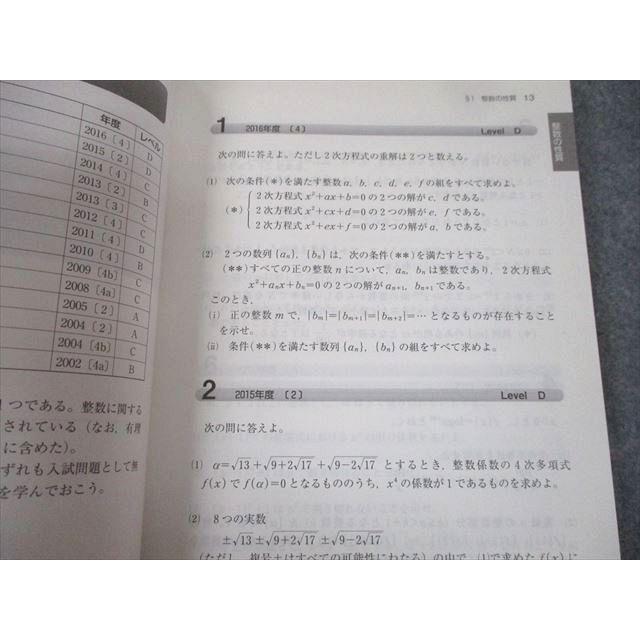 年度
レベル
2016〔4〕 D
2015〔2〕 D
2014〔4〕 C
2013〔2〕 B
2013〔3〕 C
2012〔4〕 C
2011〔4〕 D
2010〔4〕 B
2009〔4b〕 C
2008〔4a〕 C
2005〔2〕 A
2004〔2〕 A
2004〔4b〕 C
2002〔4a〕 B
1つである。整数に関する
されている（なお，有理
に含めた）。
ずれも入試問題として無
を学んでおこう。
§1 整数の性質 13
整数の性質
1 2016年度〔4〕 Level D
次の問に答えよ。ただし2次方程式の重解は2つと数える。
(1) 次の条件(*)を満たす整数a，b，c，d，e，fの組をすべて求めよ。
2次方程式 x²+ax+b=0の2つの解がc，dである。
(*) 2次方程式 x²+cx+d=0の2つの解がe，fである。
2次方程式 x²+ex+f=0の2つの解がa，bである。
(2) 2つの数列{aₙ}，{bₙ}は，次の条件(**)を満たすとする。
(**)すべての正の整数nについて，aₙ，bₙは整数であり，2次方程式
x²+aₙx+bₙ=0の2つの解がaₙ₊₁，bₙ₊₁である。
このとき，
(i) 正の整数mで，|bₘ|=|bₘ₊₁|=|bₘ₊₂|=…となるものが存在すること
を示せ。
(ii) 条件(**)を満たす数列{aₙ}，{bₙ}の組をすべて求めよ。
2 2015年度〔2〕 Level D
次の問に答えよ。
(1) α=√13+√(9+2√17)+√(9−2√17) とするとき，整数係数の4次多項式
f(x)でf(α)=0となるもののうち，x⁴の係数が1であるものを求めよ。
(2) 8つの実数
±√13±√(9+2√17)±√(9−2√17)
(ただし，複号±はすべての可能性にわたる)の中で，(1)で求めたf(x)に